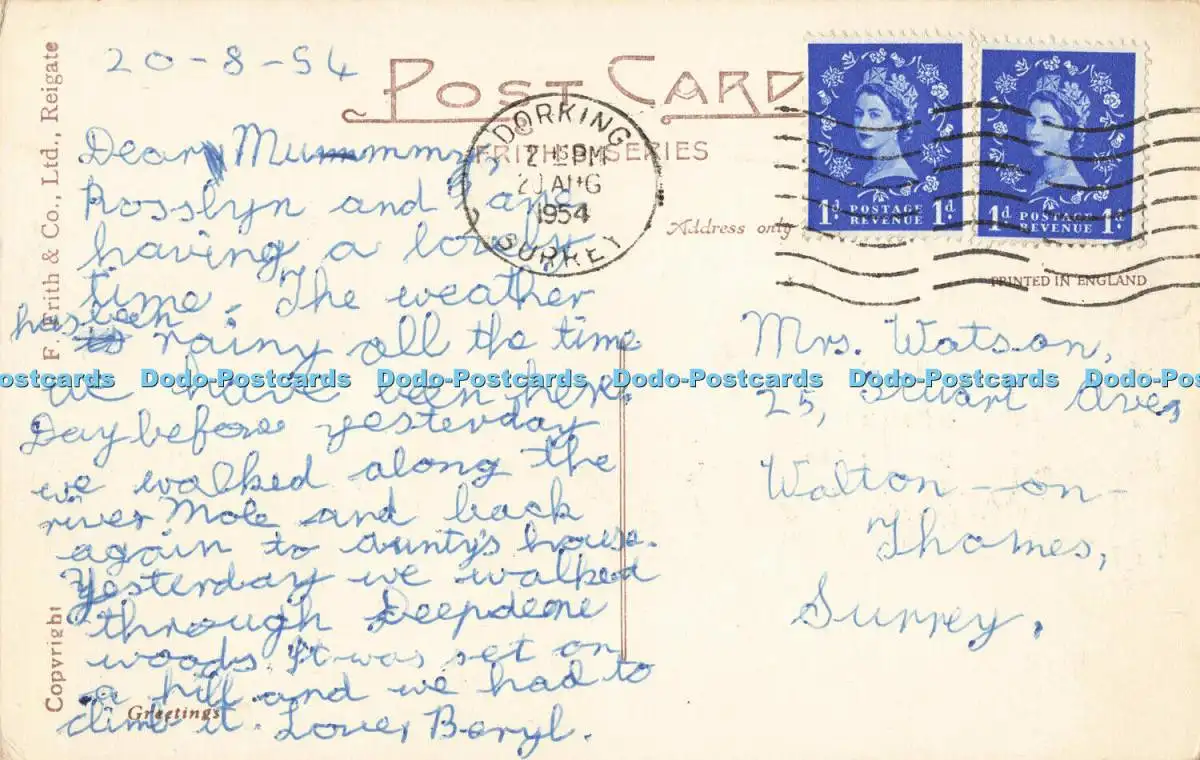 20-8-54
POST CARD
FRITH'S SERIES
DORKING
SURREY
PM
AUG
1954
1d. POSTAGE REVENUE 1d.
1d. POSTAGE REVENUE 1d.
Address only
PRINTED IN ENGLAND
F. Frith & Co., Ltd., Reigate
Copyright
Dear Mummmy,
Rosslyn and I are
having a lovely
time. The weather
has been
rainy all the time
we have been here.
Day before yesterday
we walked along the
river Mole and back
again to aunty's house.
Yesterday we walked
through Deepdene
woods. It was set on
a hill and we had to
climb it. Love Beryl.
Greetings
Mrs. Watson,
25, Stuart Ave,
Walton-on-
Thames,
Surrey.
Dodo-Postcards Dodo-Postcards Dodo-Postcards Dodo-Postcards Dodo-Postcards Dodo-Postcards